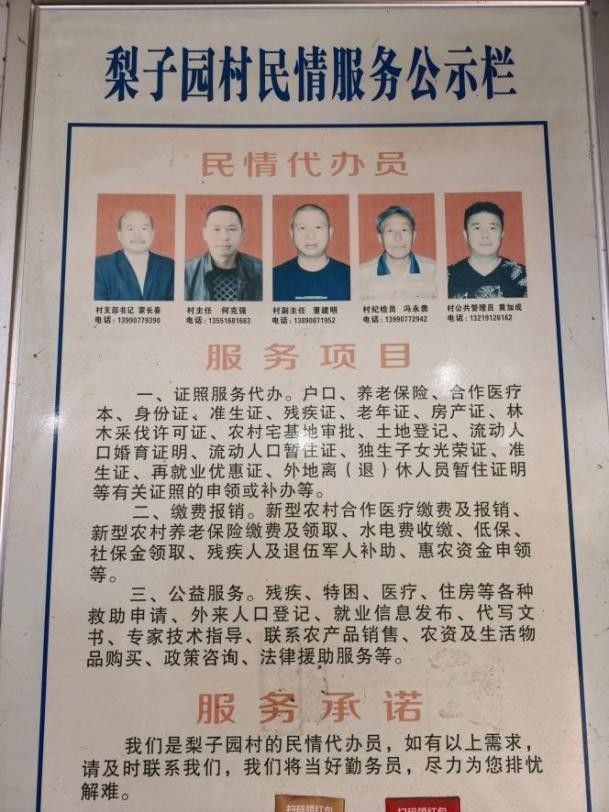 梨子园村民情服务公示栏
民情代办员
村支部书记 蒙长春
电话:13990779390
村主任 何克强
电话:13551681663
村副主任 董建明
电话:13890871952
村纪检员 冯永贵
电话:13990772942
村公共管理员 黄加成
电话:13219126162
服务项目
一、证照服务代办。户口、养老保险、合作医疗
本、身份证、准生证、残疾证、老年证、房产证、林
木采伐许可证、农村宅基地审批、土地登记、流动人
口婚育证明、流动人口暂住证、独生子女光荣证、准
生证、再就业优惠证、外地离(退)休人员暂住证明
等有关证照的申领或补办等。
二、缴费报销。新型农村合作医疗缴费及报销、
新型农村养老保险缴费及领取、水电费收缴、低保、
社保金领取、残疾人及退伍军人补助、惠农资金申领
等。
三、公益服务。残疾、特困、医疗、住房等各种
救助申请、外来人口登记、就业信息发布、代写文
书、专家技术指导、联系农产品销售、农资及生活物
品购买、政策咨询、法律援助服务等。
服务承诺
我们是梨子园村的民情代办员,如有以上需求,
请及时联系我们,我们将当好勤务员,尽力为您排忧
解难。
扫码领红包
扫码领红包